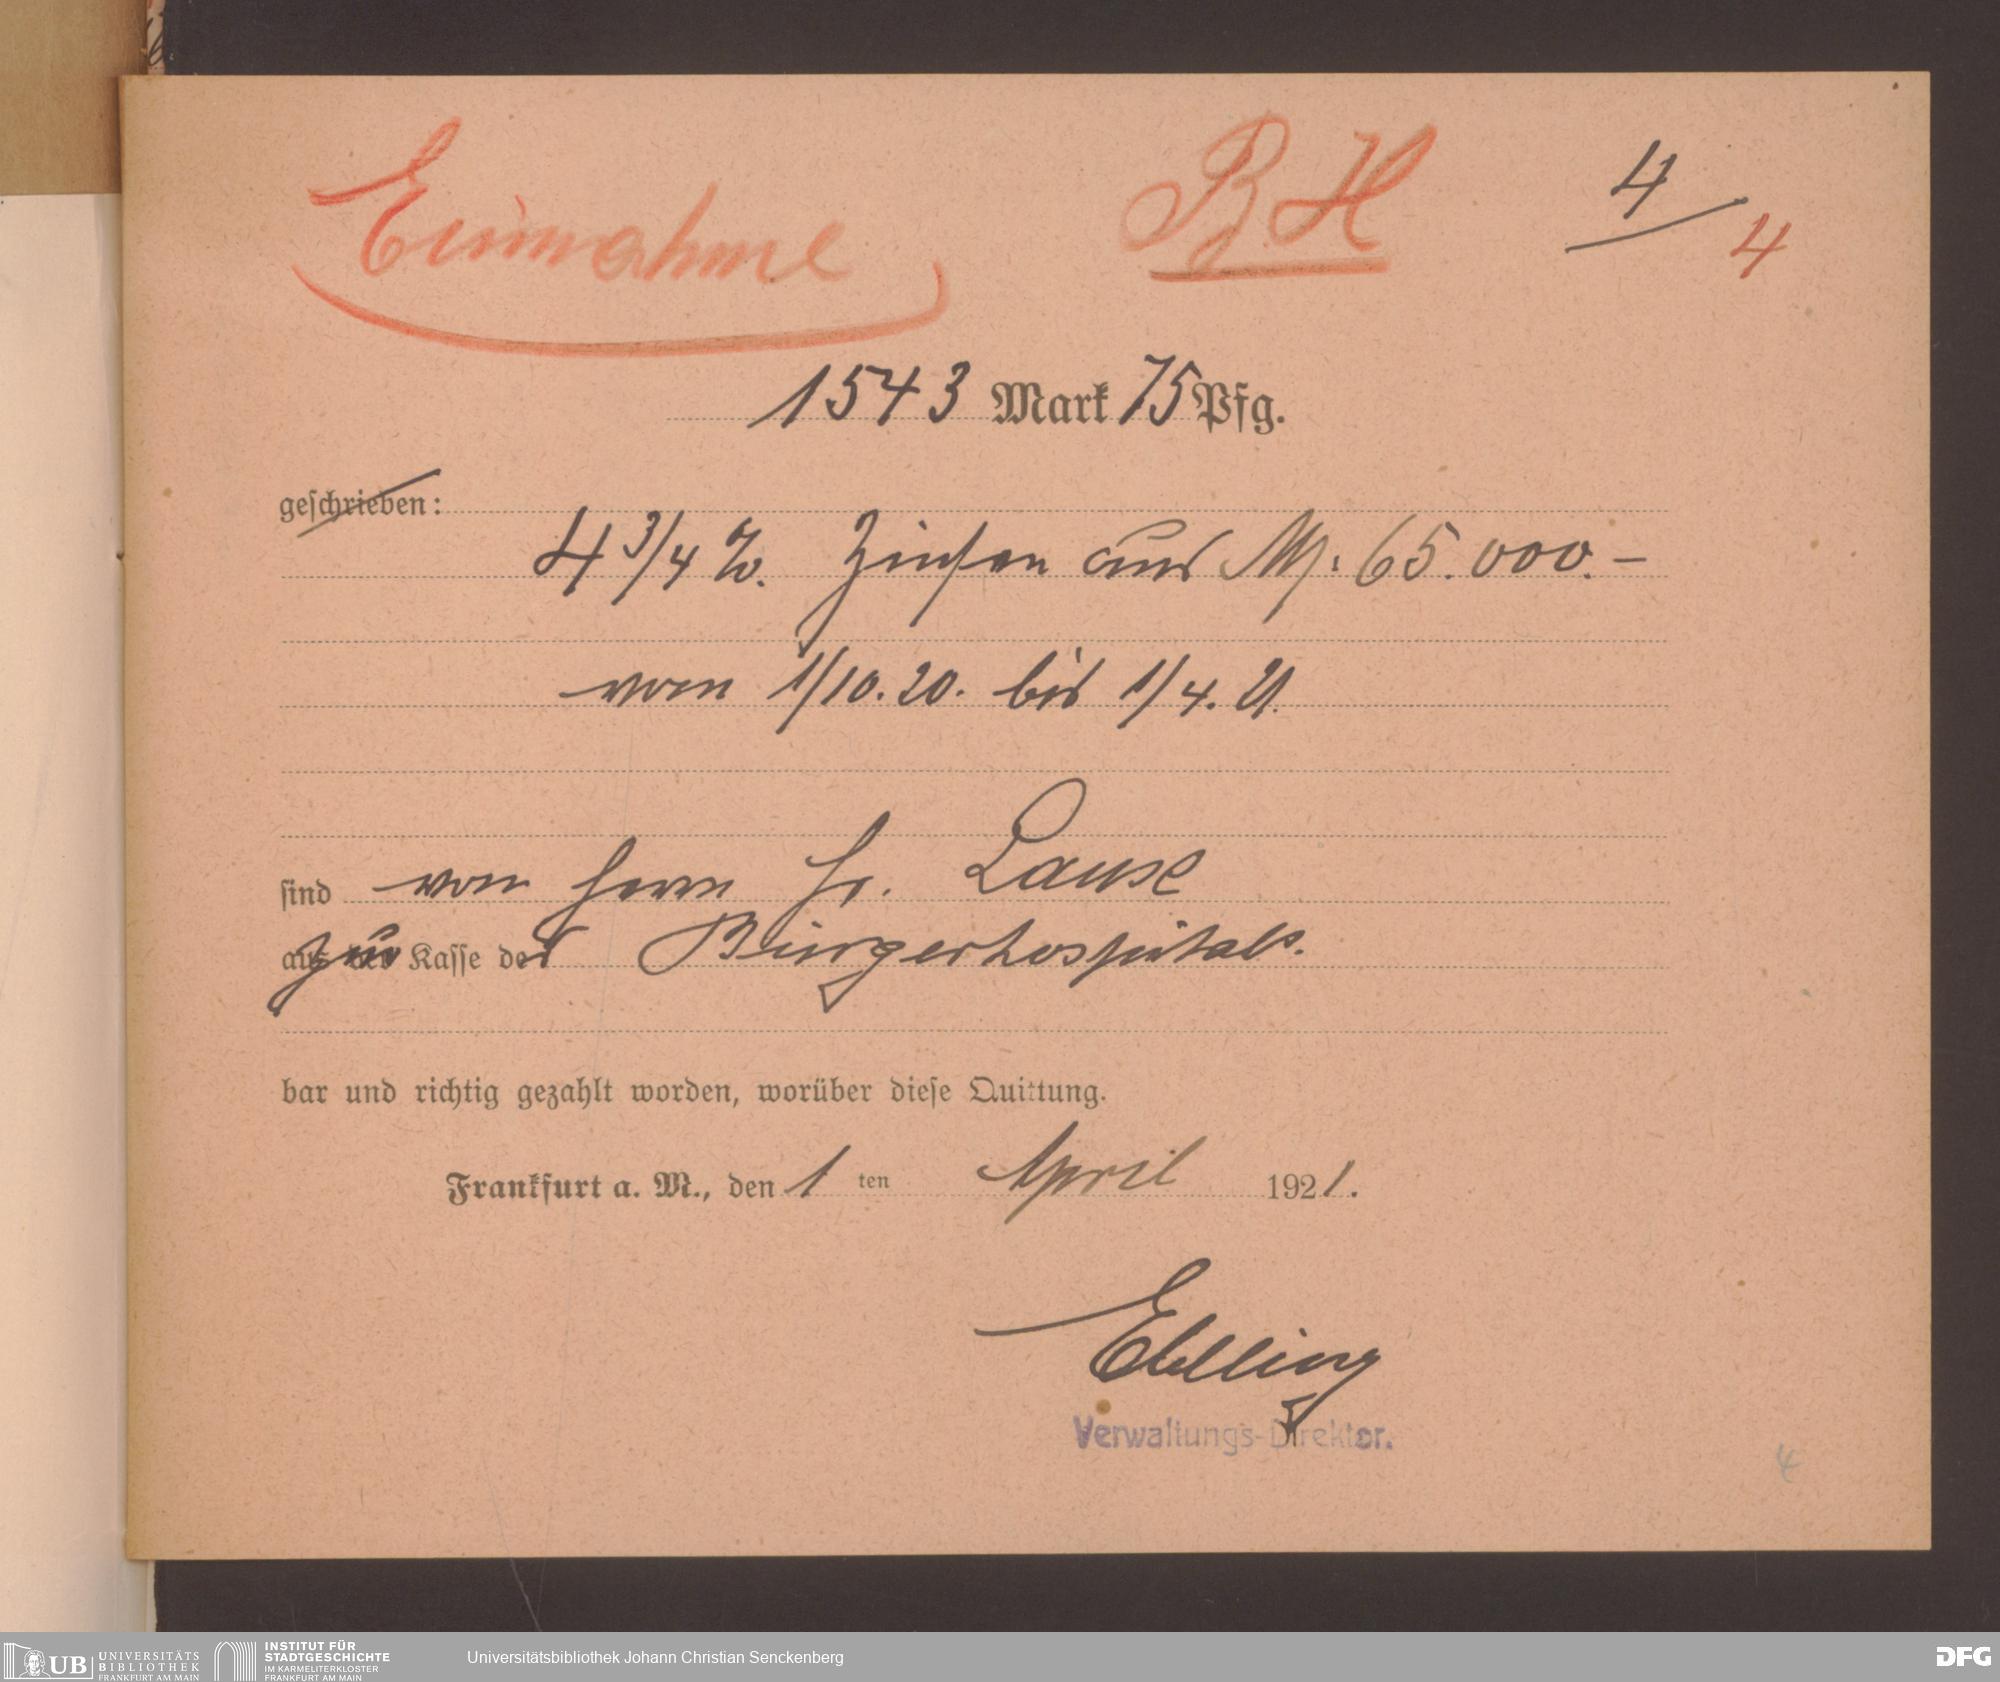 Einnahme BH 4
4
1543 Mark 75 Pfg.
geschrieben:
4 3/4 %. Zinsen aus M: 65.000.–
vom 1/10. 20. bis 1/4. 21.
sind von Herrn Fr. Lause
zur Kasse des Bürgerhospitals.
bar und richtig gezahlt worden, worüber diese Quittung.
Frankfurt a. M., den 1 ten April 1921.
Ebeling
Verwaltungs-Direktor.
4
UB UNIVERSITÄTS
BIBLIOTHEK
FRANKFURT AM MAIN
INSTITUT FÜR
STADTGESCHICHTE
IM KARMELITERKLOSTER
FRANKFURT AM MAIN
Universitätsbibliothek Johann Christian Senckenberg
DFG